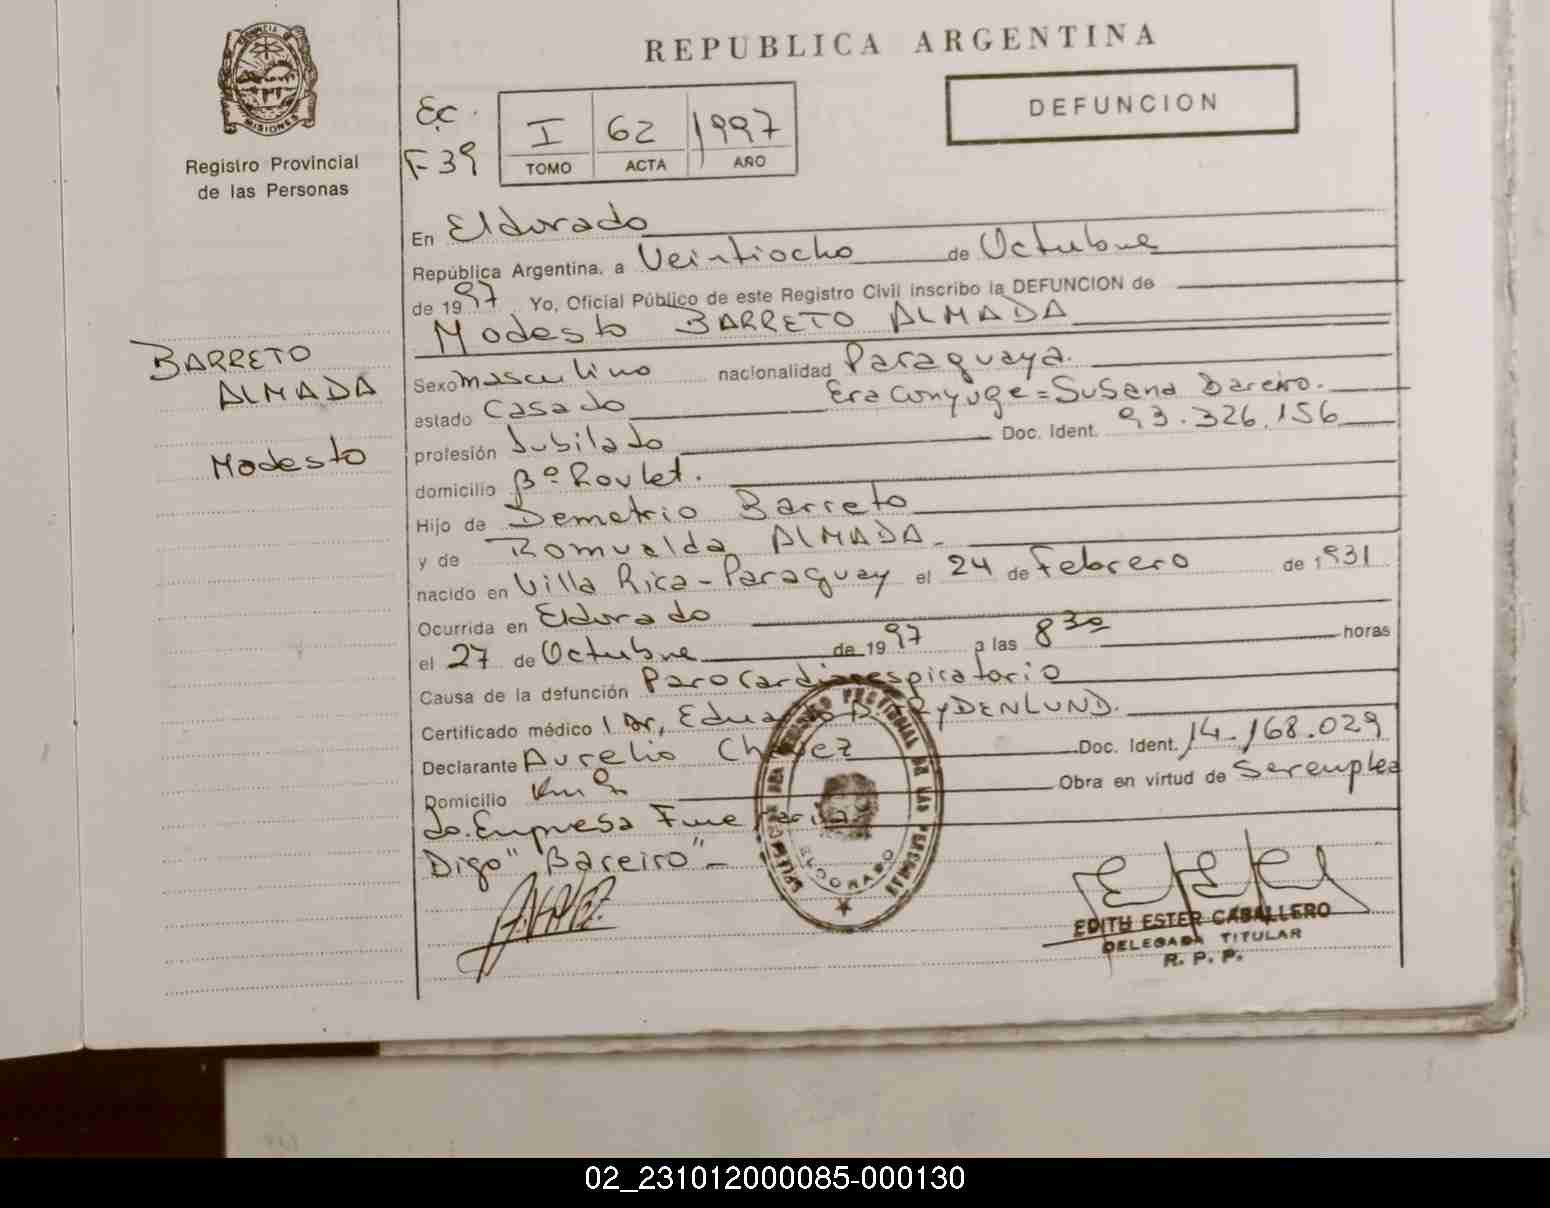 REPUBLICA ARGENTINA
PROVINCIA DE
MISIONES
Registro Provincial
de las Personas
E.C.
F-39
I 62 1997
TOMO ACTA AÑO
DEFUNCION
En Eldorado
República Argentina, a Veintiocho de Octubre
de 1997 Yo, Oficial Público de este Registro Civil inscribo la DEFUNCION de
Modesto BARRETO ALMADA
BARRETO
ALMADA
Modesto
Sexo masculino nacionalidad Paraguaya.
estado Casado Era Conyuge = Susana Bareiro.
profesión Jubilado Doc. Ident. 93.326.156
domicilio Bº Roulet.
Hijo de Demetrio Barreto
y de Romualda ALMADA-
nacido en Villa Rica - Paraguay el 24 de Febrero de 1931
Ocurrida en Eldorado
el 27 de Octubre de 1997 a las 8 30 horas
Causa de la defunción Paro Cardiorespiratorio
Certificado médico Dr, Eduardo RYDENLUND.
Declarante Aurelio Chavez Doc. Ident. 14.168.029
Domicilio Km 9 Obra en virtud de Ser emplea
do. Empresa Funeraria
Digo " Bareiro " -
REGISTRO PROVINCIAL DE LAS PERSONAS
ELDORADO
EDITH ESTER CABALLERO
DELEGADA TITULAR
R. P. P.
02_231012000085-000130